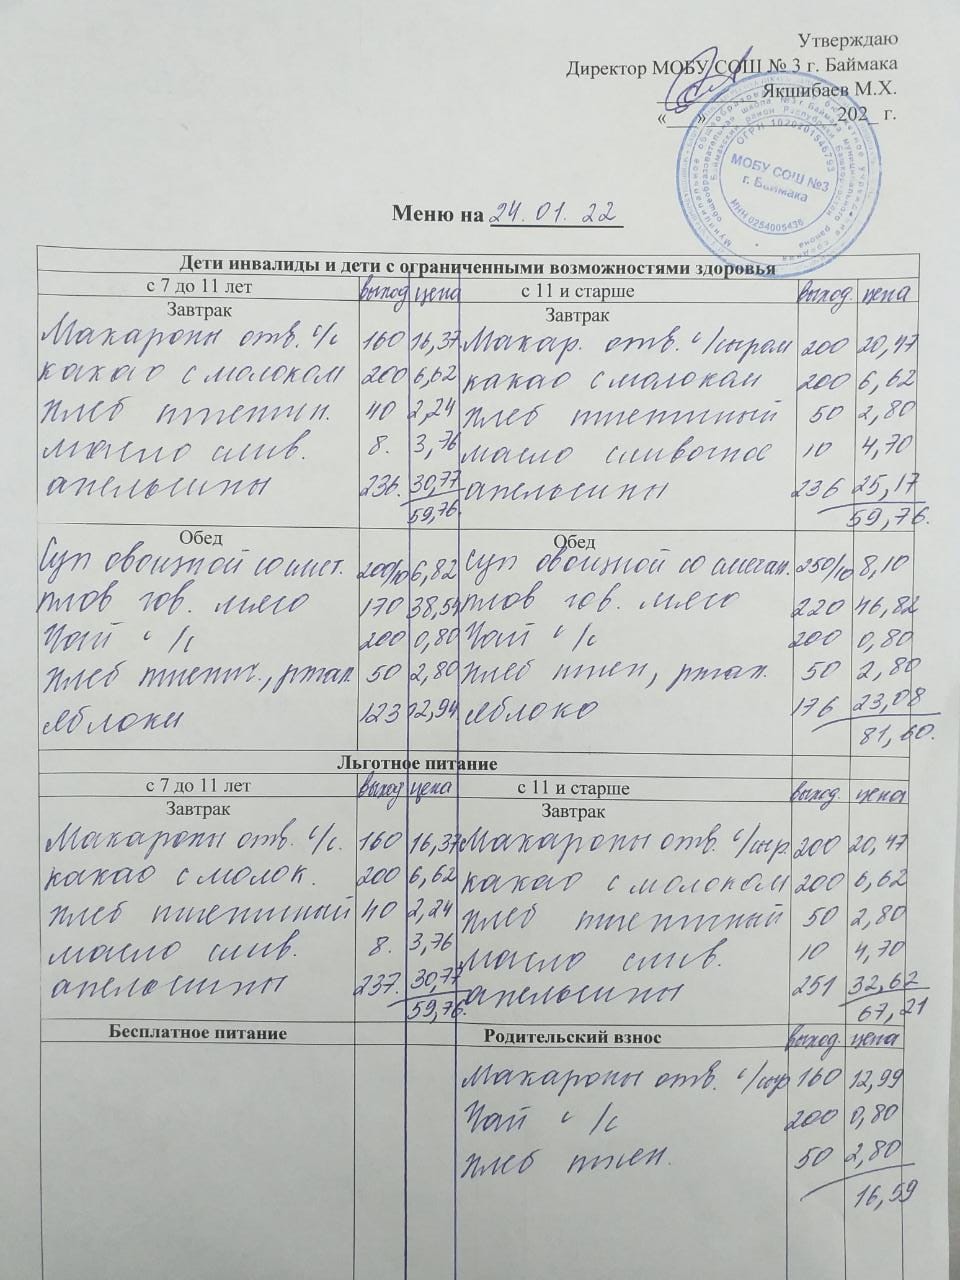 Утверждаю
Директор МОБУ СОШ № 3 г. Баймака
Якшибаев М.Х.
«___»____________202_ г.
МОБУ СОШ №3
г. Баймака
ОГРН 1020201546793
ИНН 0254005436
Меню на 24.01.22
Дети инвалиды и дети с ограниченными возможностями здоровья
с 7 до 11 лет выход цена с 11 и старше выход. цена
Завтрак Завтрак
Макароны отв. с/с 160 16,37 Макар. отв. с/сыром 200 20,47
какао с молоком 200 6,62 какао с молоком 200 6,62
хлеб пшенич. 40 2,24 хлеб пшеничный 50 2,80
масло слив. 8. 3,76 масло сливочное 10 4,70
апельсины 236. 30,77 апельсины 236 25,17
59,76. 59,76.
Обед Обед
Суп овощной со смет. 200/10 6,82 Суп овощной со сметан. 250/10 8,10
плов гов. мясо 170 38,54 плов гов. мясо 220 46,82
Чай с/с 200 0,80 Чай с/с 200 0,80
хлеб пшенич., ржан 50 2,80 хлеб пшен, ржан. 50 2,80
яблоки 123 12,94 яблоко 176 23,08
81,60.
Льготное питание
с 7 до 11 лет выход цена с 11 и старше выход. цена
Завтрак Завтрак
Макароны отв. с/с. 160 16,37 Макароны отв. с/сыр. 200 20,47
какао с молок. 200 6,62 какао с молоком 200 6,62
хлеб пшеничный 40 2,24 хлеб пшеничный 50 2,80
масло слив. 8. 3,76 масло слив. 10 4,70
апельсины 237. 30,77 апельсины 251 32,62
59,76. 67,21
Бесплатное питание Родительский взнос выход. цена
Макароны отв. с/сыр 160 12,99
Чай с/с 200 0,80
хлеб пшен. 50 2,80
16,59